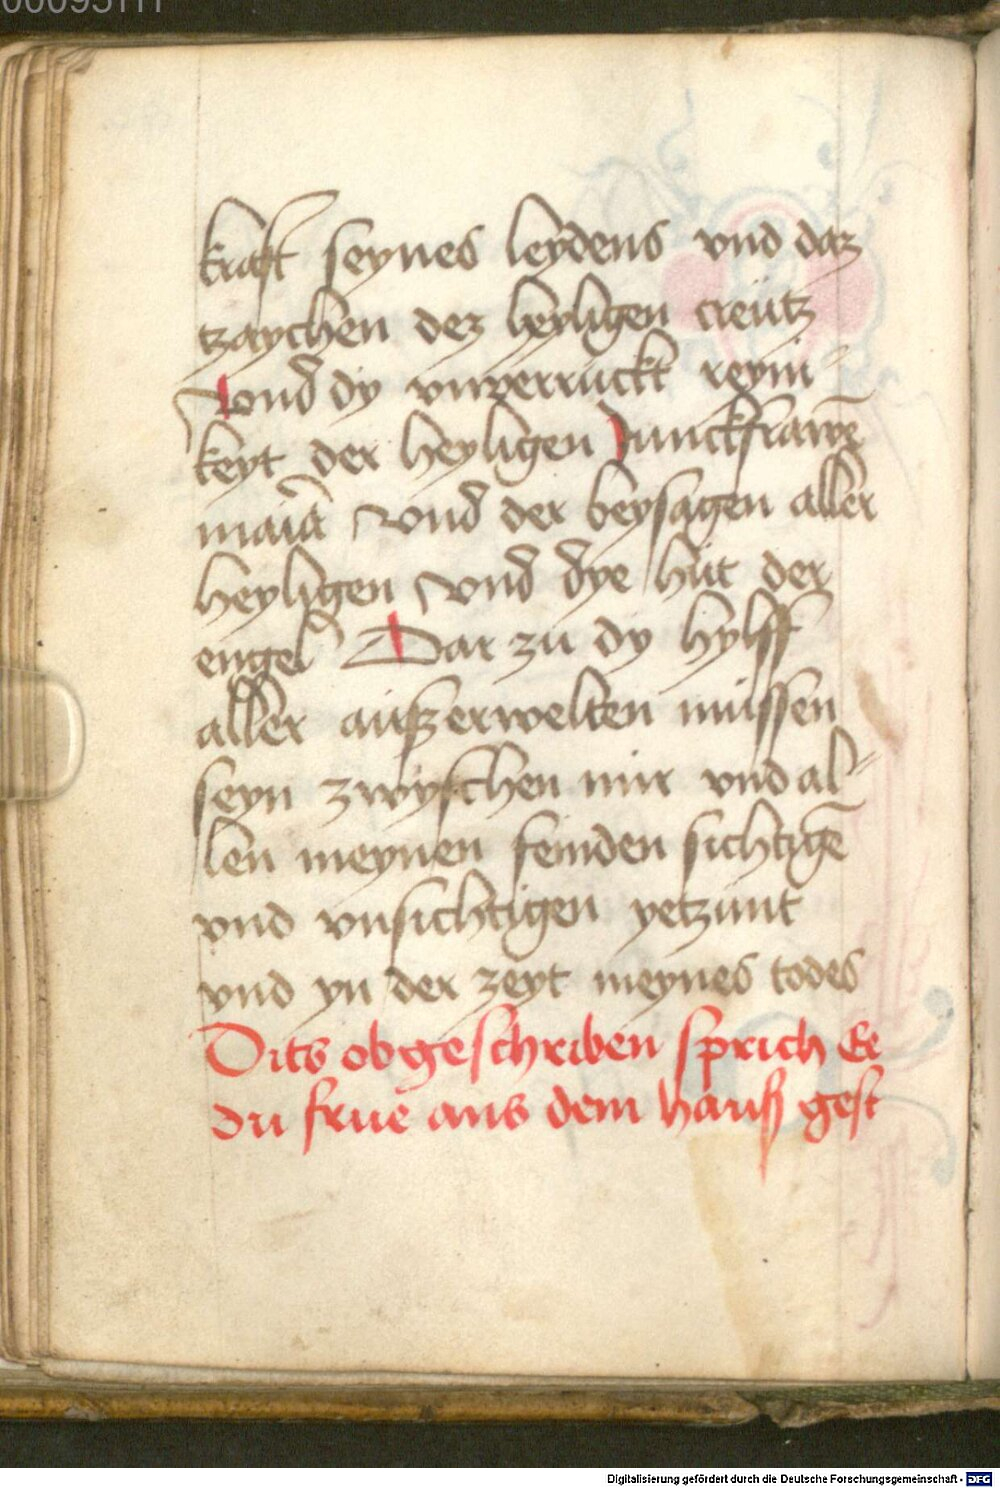 kraft seynes leydens vnd daz
tzaychen dez heyligen creütz
Vnd dy vnverruckt reyni
keyt der heyligen Junckfrawē
maria Vnd der beysagen aller
heyligen Vnd dye hüt der
engel Dar zu dy hylff
aller außerwelten müssen
seyn zwyschen mir vnd al-
len meynen feinden sichtigē
vnd vnsichtigen yetzunt
vnd yn der zeyt meynes todes
Dits obgeschriben sprich Ee
du frue aus dem hauß gest
Digitalisierung gefördert durch die Deutsche Forschungsgemeinschaft - DFG